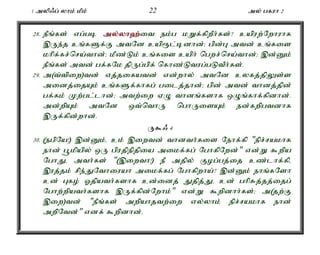 1 அலிஃப் லாம் மீம் 22 அல் பகரா 2
28. நீங்கள் எப்படி அல்லாஹ்வை நம்ப மறுக்கிறீர்கள்? உயிரற்றோராக
இருந்த உங்களுக்கு அவனே உயிரூட்டினான்; பின்பு அவன் உங்களை
மரிக்கச்செய்வான்; மீண்டும் உங்களை உயிர் பெறச்செய்வான்; இன்னும்
நீங்கள் அவன் பக்கமே திருப்பிக் கொண்டுவரப்படுவீர்கள்.
29. அ(வ்விறை)வன் எத்தகையவன் என்றால் அவனே உலகத்திலுள்ள
அனைத்தையும் உங்களுக்காகப் படைத்தான்; பின் அவன் வானத்தின்
பக்கம் முற்பட்டான்; அவற்றை ஏழு வானங்களாக ஒழுங்காக்கினான்.
அன்றியும் அவனே ஒவ்வொரு பொருளையும் நன்கறிபவனாக
இருக்கின்றான்.
ருகூஃ 4
30. (நபியே) இன்னும், உம் இறைவன் வானவர்களை நோக்கி "நிச்சயமாக
நான் பூமியில் ஒரு பிரதிநிதியை அமைக்கப் போகிறேன்" என்று கூறிய
போது, அவர்கள் "(இறைவா) நீ அதில் குழப்பத்தை உண்டாக்கி,
இரத்தம் சிந்துவோரையா அமைக்கப் போகிறாய்? இன்னும் நாங்களோ
உன் புகழ் ஓதியவர்களாக உன்னைத் துதித்து, உன் பரிசுத்தத்தைப்
போற்றியவர்களாக இருக்கின்றோம்" என்று கூறினார்கள்; அ(தற்கு
இறை)வன் "நீங்கள் அறியாதவற்றை எல்லாம் நிச்சயமாக நான்
அறிவேன்" எனக் கூறினான்.